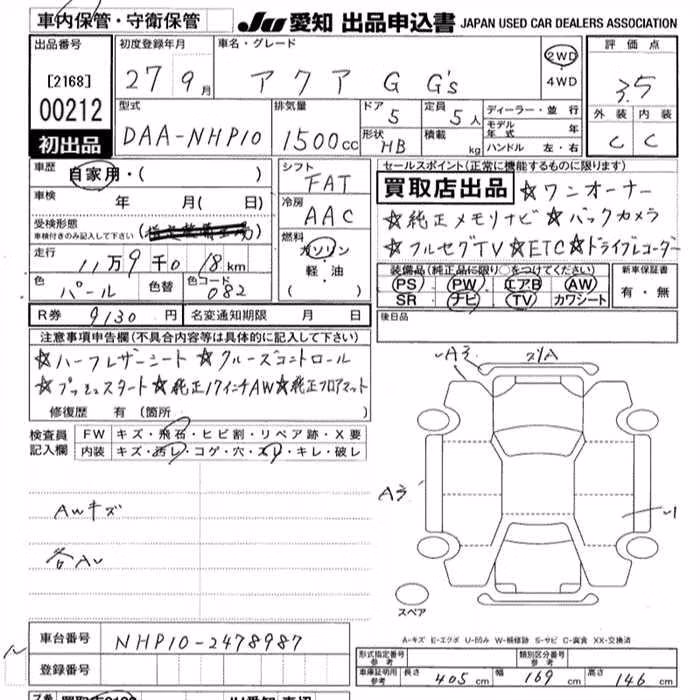 車内保管・守衛保管 JU 愛知 出品申込書 JAPAN USED CAR DEALERS ASSOCIATION
出品番号 [2168] 00212 初出品
初度登録年月 27 9月
車名・グレード アクア G G's
2WD
4WD
評価点 3.5
外装 内装
C C
型式 DAA-NHP10
排気量 1500cc
ドア 5
定員 5人
形状 HB
積載 kg
ディーラー・並行
モデル年式 年
ハンドル 左・右
車歴 自家用・( )
車検 年 月( 日)
受検形態
車検付きのみ記入して下さい
走行 11万9千018km
色 パール 色替 色コード 082
シフト FAT
冷房 AAC
燃料 ガソリン
軽・油
( )
セールスポイント(正常に機能するものに限ります)
買取店出品 ☆ワンオーナー
☆純正メモリナビ☆バックカメラ
☆フルセグTV☆ETC☆ドライブレコーダー
装備品(純正品に限り○をつけてください)
PS PW エアB AW
SR ナビ TV カワシート
新車保証書
有・無
後日品
R券 9130円 名変通知期限 月 日
注意事項申告欄(不具合内容等は具体的に記入して下さい)
☆ハーフレザーシート ☆クルーズコントロール
☆プッシュスタート☆純正17インチAW☆純正フロアマット
修復歴 有(箇所 )
検査員記入欄
FW キズ・飛石・ヒビ割・リペア跡・X要
内装 キズ・汚レ・コゲ・穴・スレ・キレ・破レ
AWキズ
各AU
A3
A3
スペア
A-キズ E-エクボ U-凹み W-補修跡 S-サビ C-腐食 XX-交換済
車台番号 NHP10-2478987
登録番号
形式指定番号 参考
類別区分番号 参考
車庫証明用 参考 長さ 405cm 幅 169cm 高さ 146cm